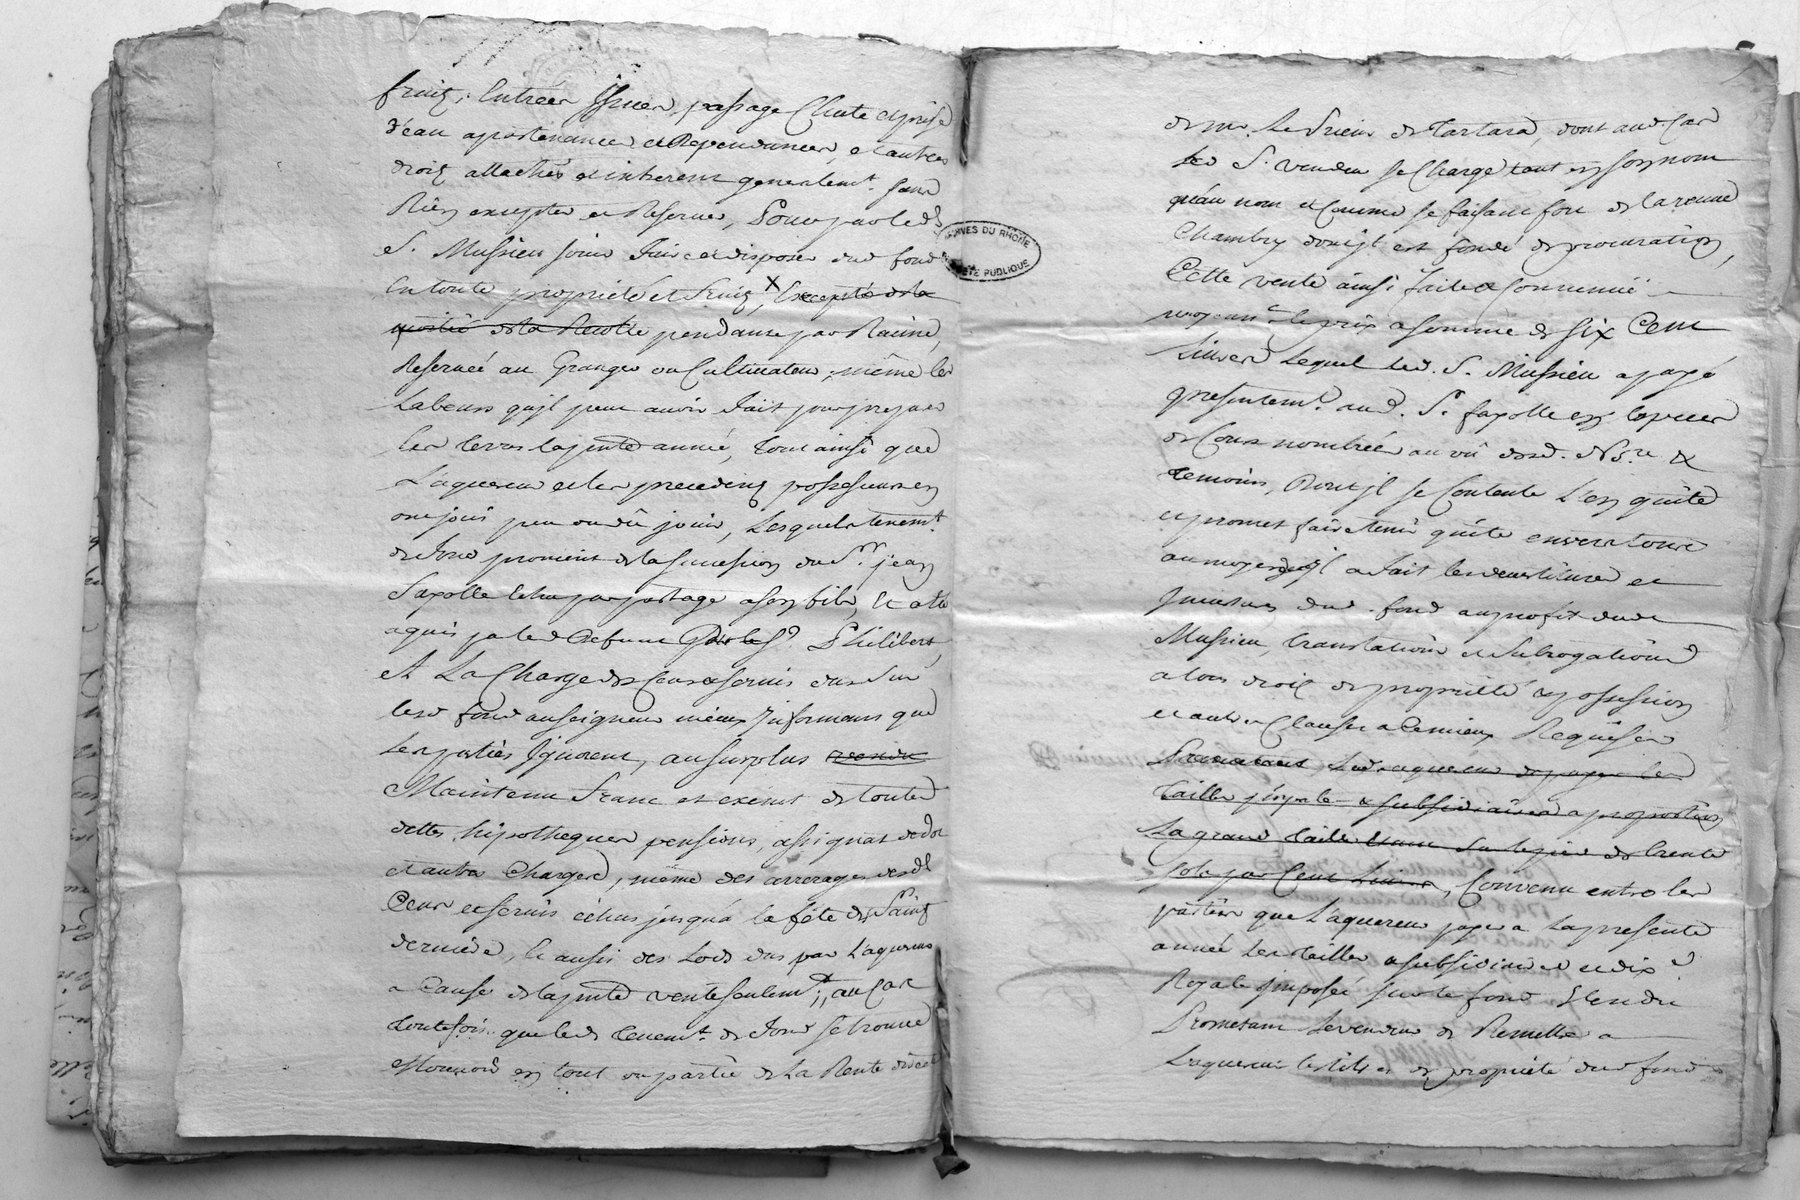 fruitz, Entrées Issues, passage Chute et prise
d'eau apartenances et Dependances, et autres
droitz attachés et inherent generalemt. sans
Rien excepter ni Reserver, Pour par led.
S. Mussieu jouir Faire et disposer dud fond
En toute propriété et fruitz X, Exceptés de la
moitié de la Recolte pendante par Racine,
Reservée au Granger ou Cultivateur, même les
Labeurs qu'jl peut avoir Fait pour preparer
les terres la pnte année, Tout ainsi que
L'aquereur et les precedents possesseurs en
ont joüi peu ou dû jouir, Lesquels tenemt.
de Fond provient de la succession du Sr. jean
Fapolle Echu par partage a son fils, Et a été
aquis par led Defunt Philibert,
A La Charge des Cens & servis dus sur
led fond au seigneur mieux jnformant que
Les parties Ignorent, au surplus
Maintenu Franc et exemt de toutes
dettes hipotheques pensions, assignat de dot
et autres Charges, même des arrerages desd
Cens et servis échus jusqu'a la fête de St Saint
derniere, Et aussi des Lods dus par L'aquereur
a Cause de la pnte vente seulemt., au Cas
toutefois que led tenemt. de Fond se trouve
Mouvoir en tout ou partie de La Rente directe
de Mr. Le Prieur de Tartara, dont aud Cas
led S. vendeur se Charge tant en son nom
qu'au nom et Comme se faisant fort de la
Chambry dont jl est fondé de procuration,
Cette vente ainsi faite & Convenüe
moyent. le prix & somme de six Cent
Livres Lequel led. S. Mussieu a payé
presentemt. aud. Sr. fapolle en Especes
de Cours nombrées au vû desd. Nore. &
temoins, Dont jl se Contente L'en quitte
et promet faire tenir quitte envers tous
au moyen de quoi jl a Fait les devestitures et
jnvestitures dud. fond au profit dud
Mussieu, translations et Subrogations
a tous droitz de propriété & possession
et autres Clauses a Ce mieux Requises
Promettant Led. aquereur de payer les
Taille jmposée & subsidiaires a proportion
La grande Taille Etant sur le pied de trente
sols par Cent Livres, Convenu entre les
parties que L'aquereur payera La presente
année Les Tailles & subsidiaires et dixe.
Royale jmposés sur le fond Vendu
Prometant Le vendeur de Remettre a
L'aquereur les titres de propriété dud fond
ARCHIVES DU RHÔNE
PROPRIÉTÉ PUBLIQUE